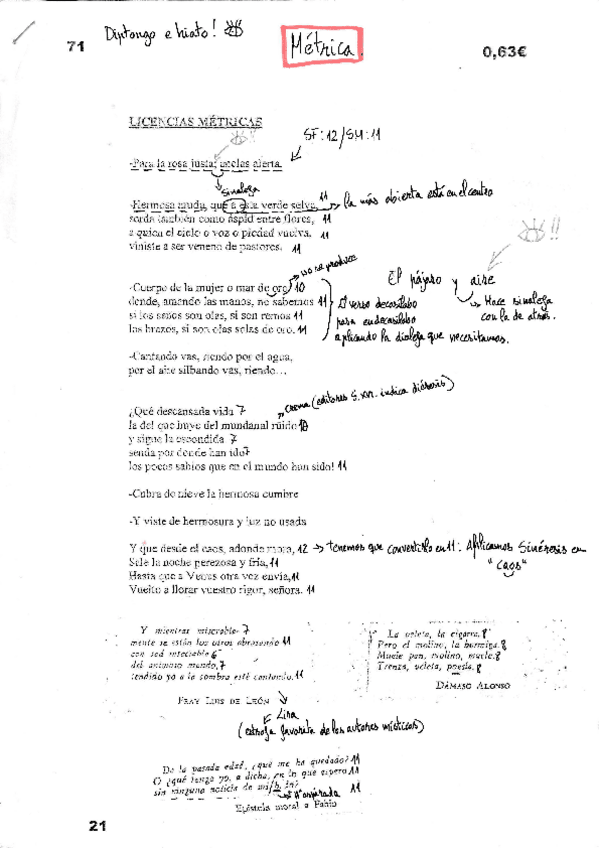 Diptongo e hiato!
71
Métrica.
0,63€
LICENCIAS MÉTRICAS
SF:12/SM:11
-Para la rosa justa; alerta.
Sinalefa
-Hermosa muda, que a esta verde selva, 11 la más abierta está en el centro
sorda también como áspid entre flores, 11
a quien el cielo o voz o piedad vuelva, 11
viniste a ser veneno de pastores. 11
!!
no se produce
El pájaro y aire
Hace sinalefa con la de atrás.
-Cuerpo de la mujer o mar de oro 10
donde, amando las manos, no sabemos 11
si los senos son olas, si son remos 11
los brazos, si son olas solas de oro. 11
El verso decasílabo
para endecasílabo
aplicando la dialefa que necesitamos.
-Cantando vas, riendo por el agua,
por el aire silbando vas, riendo…
crema (editores S.XVI. indica diéresis)
¿Qué descansada vida 7
la del que huye del mundanal ruido 10
y sigue la escondida 7
senda por donde han ido 7
los pocos sabios que en el mundo han sido! 11
-Cubra de nieve la hermosa cumbre
-Y viste de hermosura y luz no usada
Y que desde el caos, adonde mora, 12 → tenemos que convertirlo en 11: Aplicamos Sinéresis en
"caos"
Sale la noche perezosa y fría, 11
Hasta que a Venus otra vez envía, 11
Vuelto a llorar vuestro rigor, señora. 11
Y mientras miserable- 7
mente se están los otros abrasando 11
con sed insaciable 6
del animoso mando, 7
tendido yo a la sombra esté cantando. 11
FRAY LUIS DE LEÓN
Lira
(estrofa favorita de los autores místicos)
La veleta, la cigarra. 8
Pero el molino, la hormiga. 8
Muele pan, molino, muele. 8
Trenza, veleta, poesía. 8
DÁMASO ALONSO
De la pasada edad, ¿qué me ha quedado? 11
O ¿qué tengo yo, a dicha, en lo que espero 11
sin ninguna noticia de mi hado? 11
"H" aspirada
Epístola moral a Fabio
21